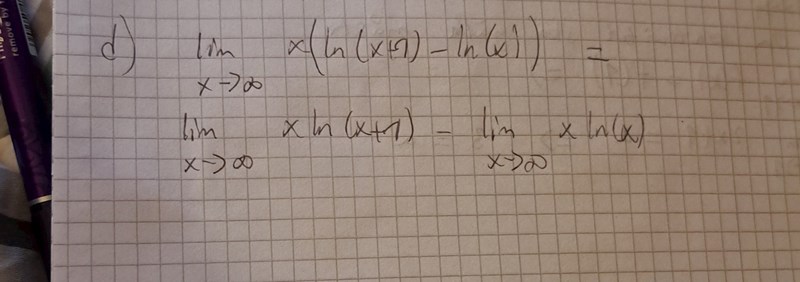 d) lim x→∞ x(ln(x+1) - ln(x)) =
lim x→∞ x ln(x+1) - lim x→∞ x ln(x)